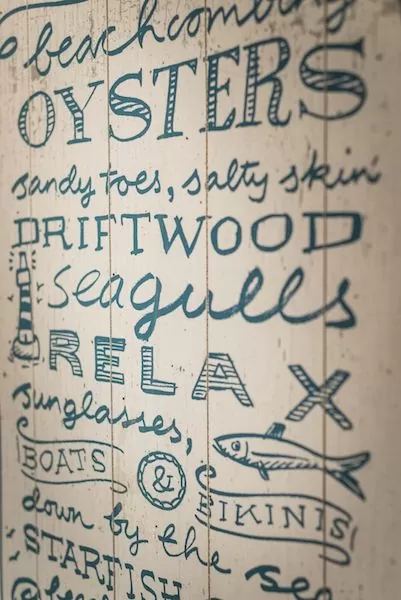 beachcombing
OYSTERS
sandy toes, salty skin
DRIFTWOOD
Seagulls
RELAX
sunglasses,
BOATS & BIKINIS
down by the sea
STARFISH